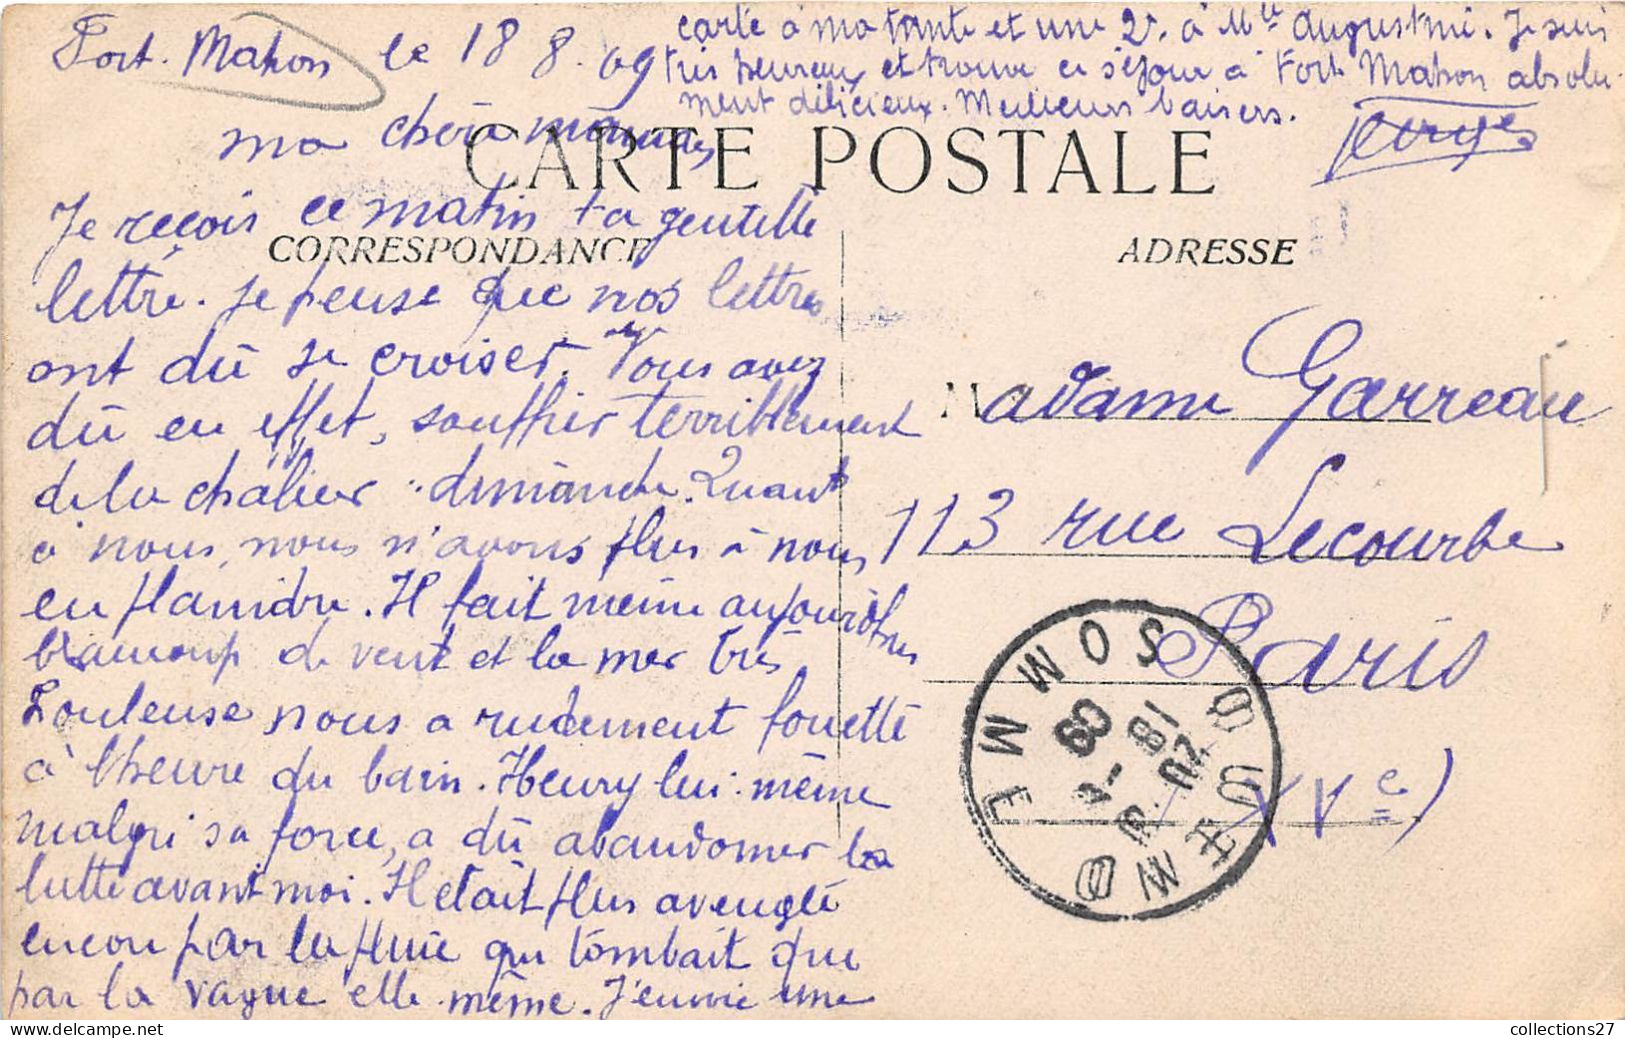 Fort-Mahon le 18 8.09
ma chère maman
CARTE POSTALE
CORRESPONDANCE
Je reçois ce matin ta gentille
lettre. Je pense que nos lettres
ont dû se croiser. Vous avez
dû en effet, souffrir terriblement
de la chaleur dimanche. Quant
à nous, nous n'avons plus à nous
en plaindre. Il fait même aujourd'hui
beaucoup de vent et la mer très
houleuse nous a rudement fouetté
à l'heure du bain. Henry lui-même
malgré sa force, a dû abandonner la
lutte avant moi. Il était plus aveuglé
encore par la pluie qui tombait que
par la vague elle-même. J'envoie une
carte à ma tante et une 2e. à Mlle Augustine. Je suis
très heureux et trouve ce séjour à Fort Mahon absolu-
ment délicieux. Meilleurs baisers.
ADRESSE
Madame Garreau
113 rue Lecourbe
Paris
(XVe)
SOMME
18 -8
09
collections27